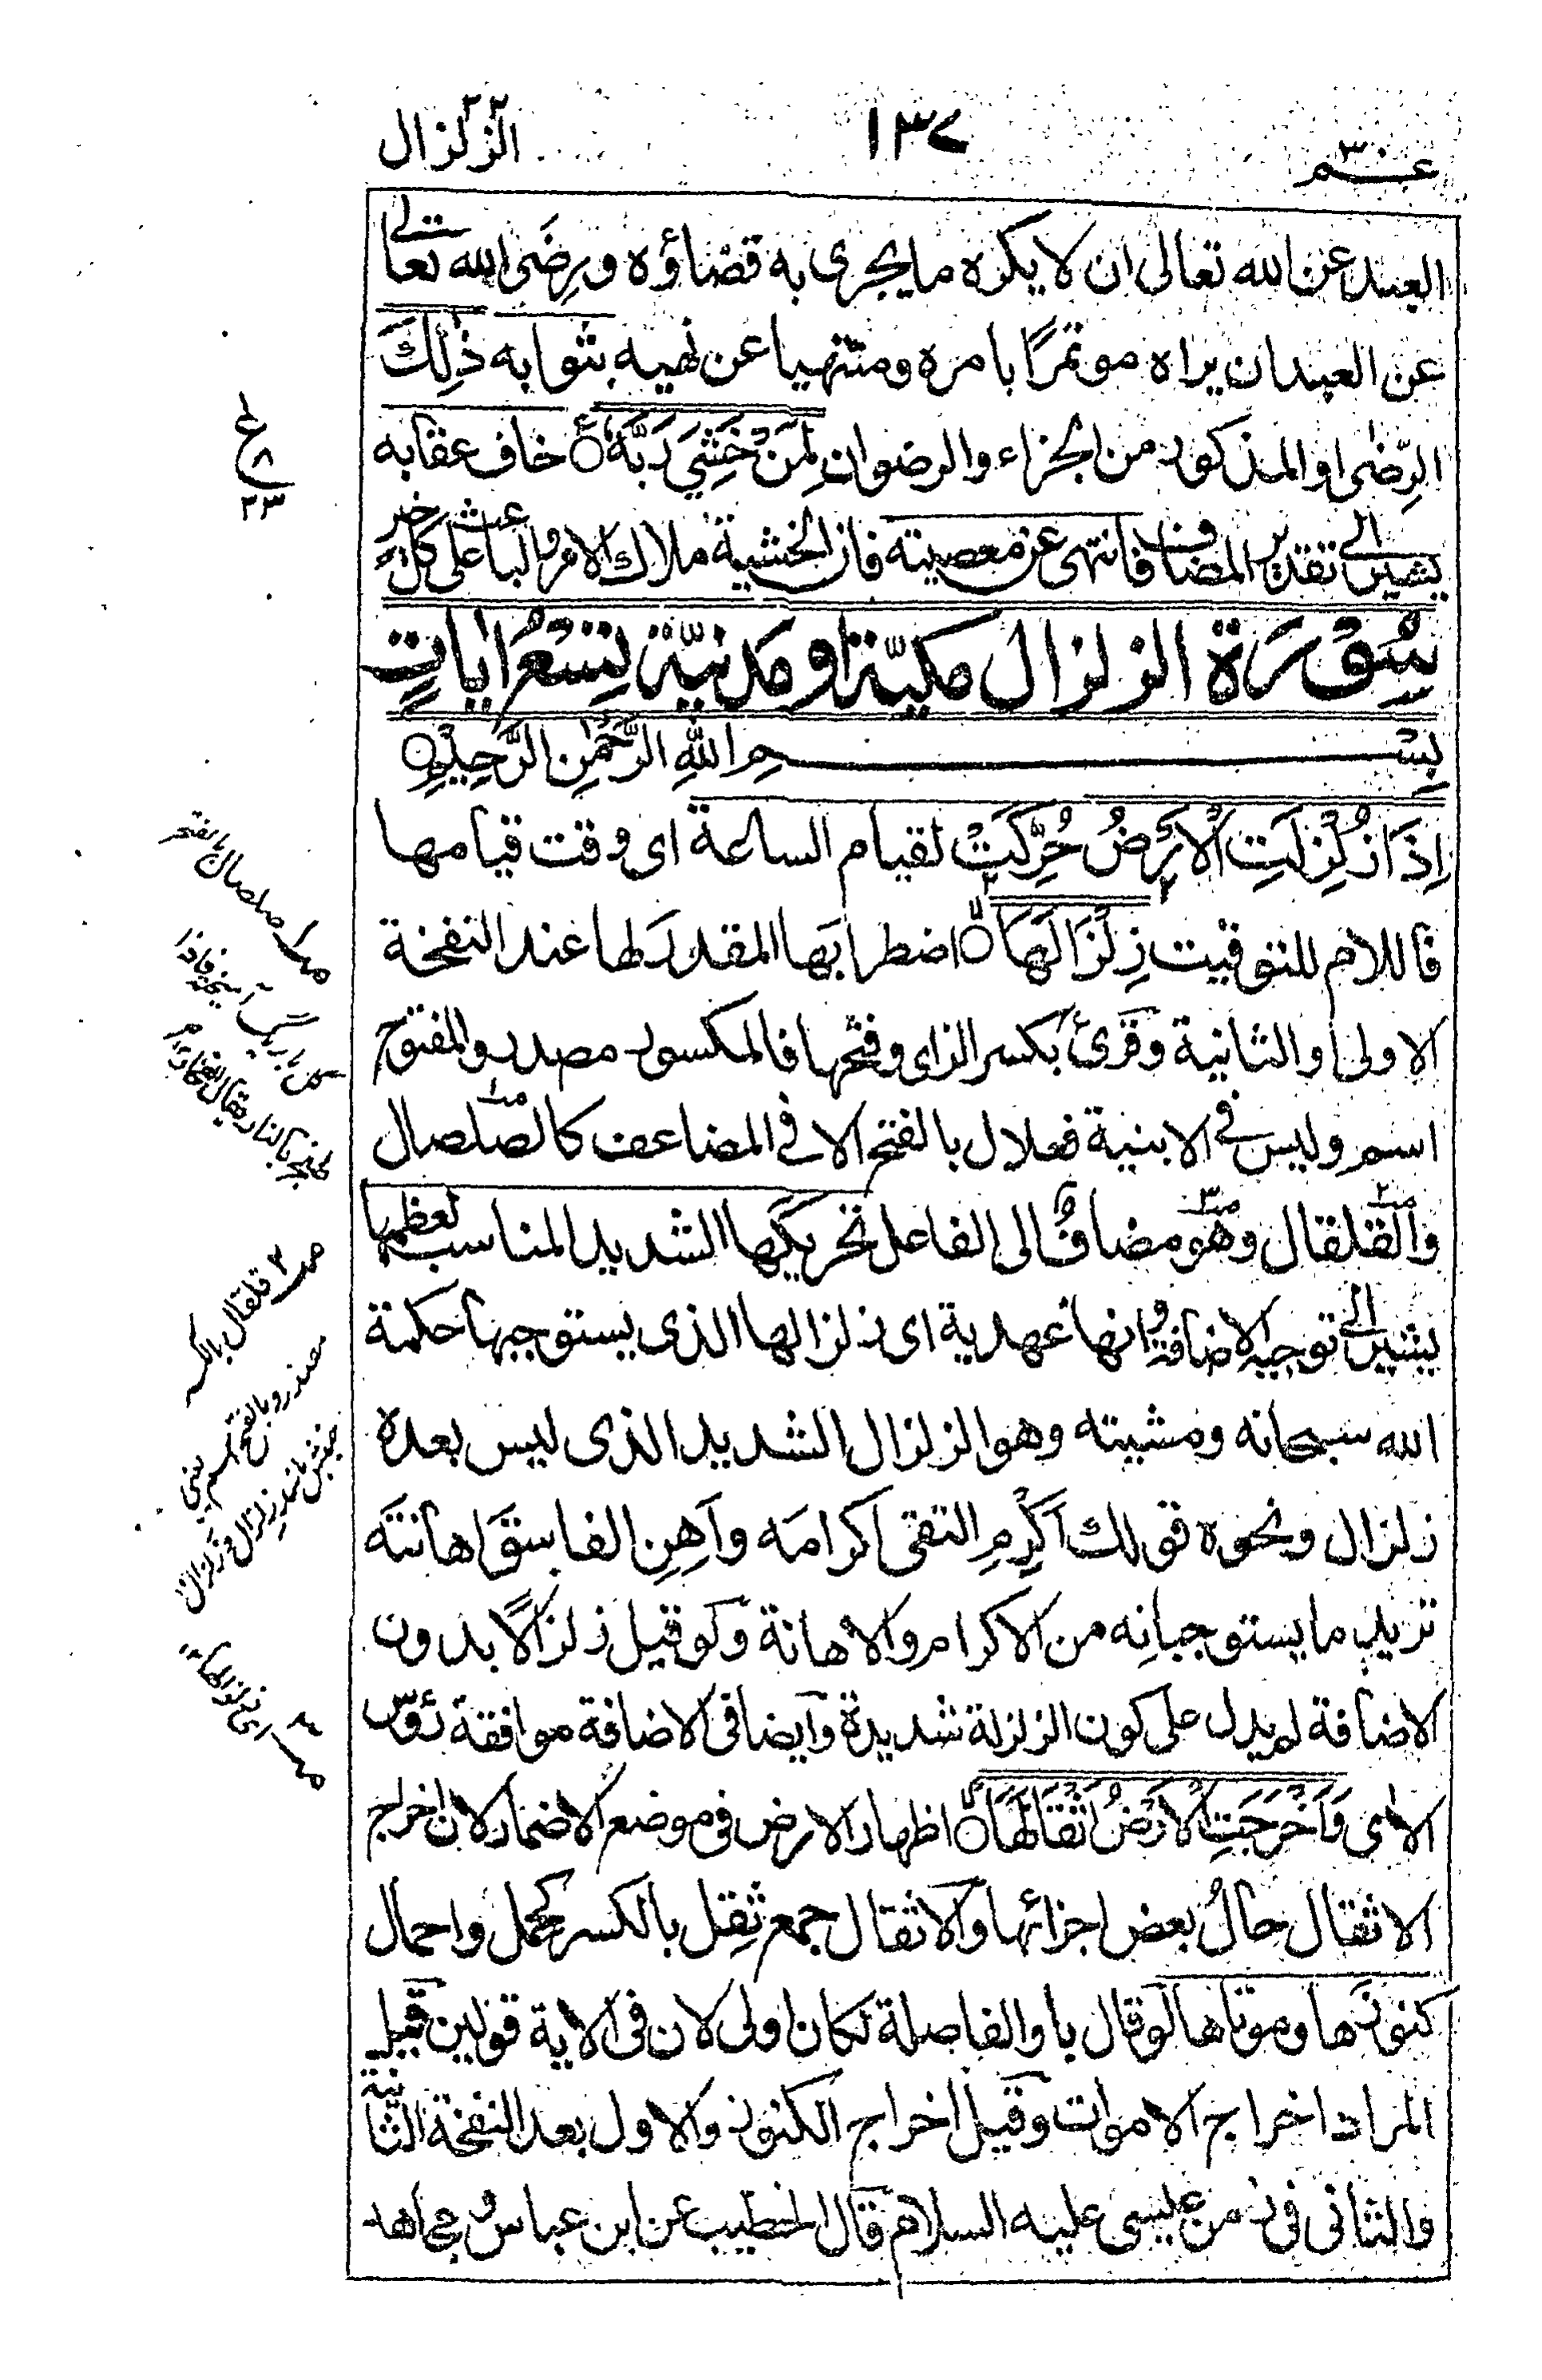 عم ٣٠
١٣٧
الزلزال ٩٩
العبد عن الله تعالى ان لا يكره ما يجرى به قضاؤه ورِضَى الله تعالى
عن العبد ان يراه موتمرًا بامره ومنتهيا عن نهيه بثوابه ذٰلِكَ
الرِّضٰى او المذكور من الجزاء والرضوان لِمَنْ خَشِيَ رَبَّهٗ خاف عقابه
يشير الى تقدير المضاف فانتهى عن معصيته فان الخشية ملاك الامر والباعث على كل خير
سُوْرَة الزلزال مكيّة او مدنيّة تِسْعُ اٰيَاتٍ
بِسْمِ اللّٰهِ الرَّحْمٰنِ الرَّحِيْمِ
اِذَا زُلْزِلَتِ الْاَرْضُ حُرِّكَتْ لقيام الساعة اى وقت قيامها
فاللام للتوقيت زِلْزَالَهَا اضطرابَها المقدر لها عند النفخة
الاولى او الثانية وقرئ بكسر الزاى وفتحها فالمكسور مصدر والمفتوح
اسم وليس فى الابنية فعلال بالفتح الا فى المضاعف كالصلصال
والقلقال وهو مضافٌ الى الفاعل تحريكها الشديد المناسب لعظمها
يشير الى توجيه الاضافة وانها عهدية اى زلزالها الذى يستوجبها حكمة
الله سبحانه ومشيته وهو الزلزال الشديد الذى ليس بعده
زلزال ونحوه قولك اَكْرِمِ التقى اكرامَه واَهِنِ الفاسقَ اهانتَه
تريد ما يستوجبانِه من الاكرام والاهانة ولو قيل زلزالًا بدون
الاضافة لم يدل على كون الزلزلة شديدة وايضا فى الاضافة موافقة رؤس
الاى وَاَخْرَجَتِ الْاَرْضُ اَثْقَالَهَا اظهار الارض فى موضع الاضمار لان اخراج
الاثقال حالُ بعض اجزائها والاثقال جمع ثِقل بالكسر كحمل واحمال
كنوزها وموتاها لو قال باو الفاصلة لكان اولى لان فى الاية قولين قيل
المراد اخراج الاموات وقيل اخراج الكنوز والاول بعد النفخة الثانية
والثانى فى زمن عيسى عليه السلام قال الخطيب عن ابن عباس ومجاهد
ع
٨
٢٣
صلصال بالفتح
قلقال بالكسر
مصدر وبالفتح اسم يعنى
جنبش مانند زلزال وزلزال
اى زلزالها